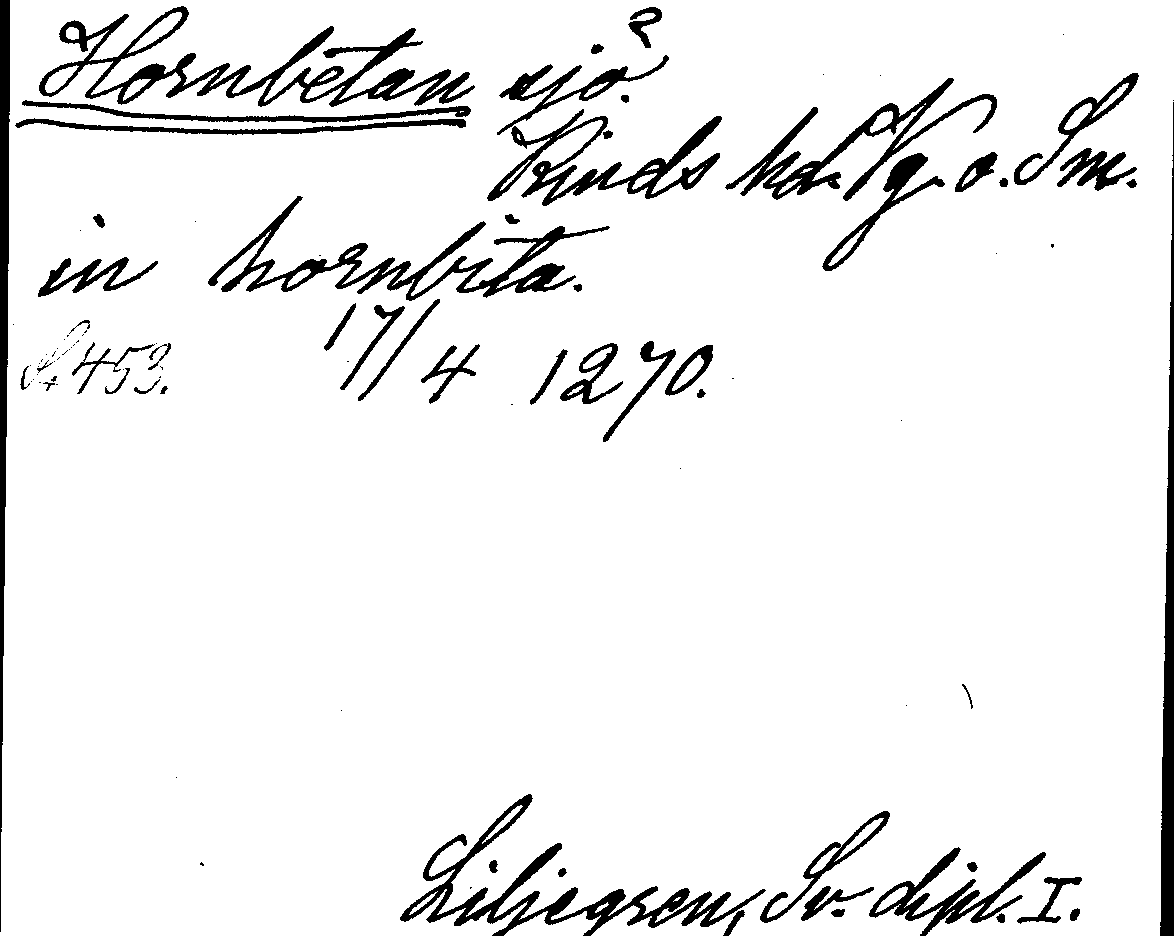 Hornbetan sjö?
Kinds hd. Vg. o. Sm.
in hornbita.
S. 453. 17/4 1270.
Liljegren, Sv. dipl. I.